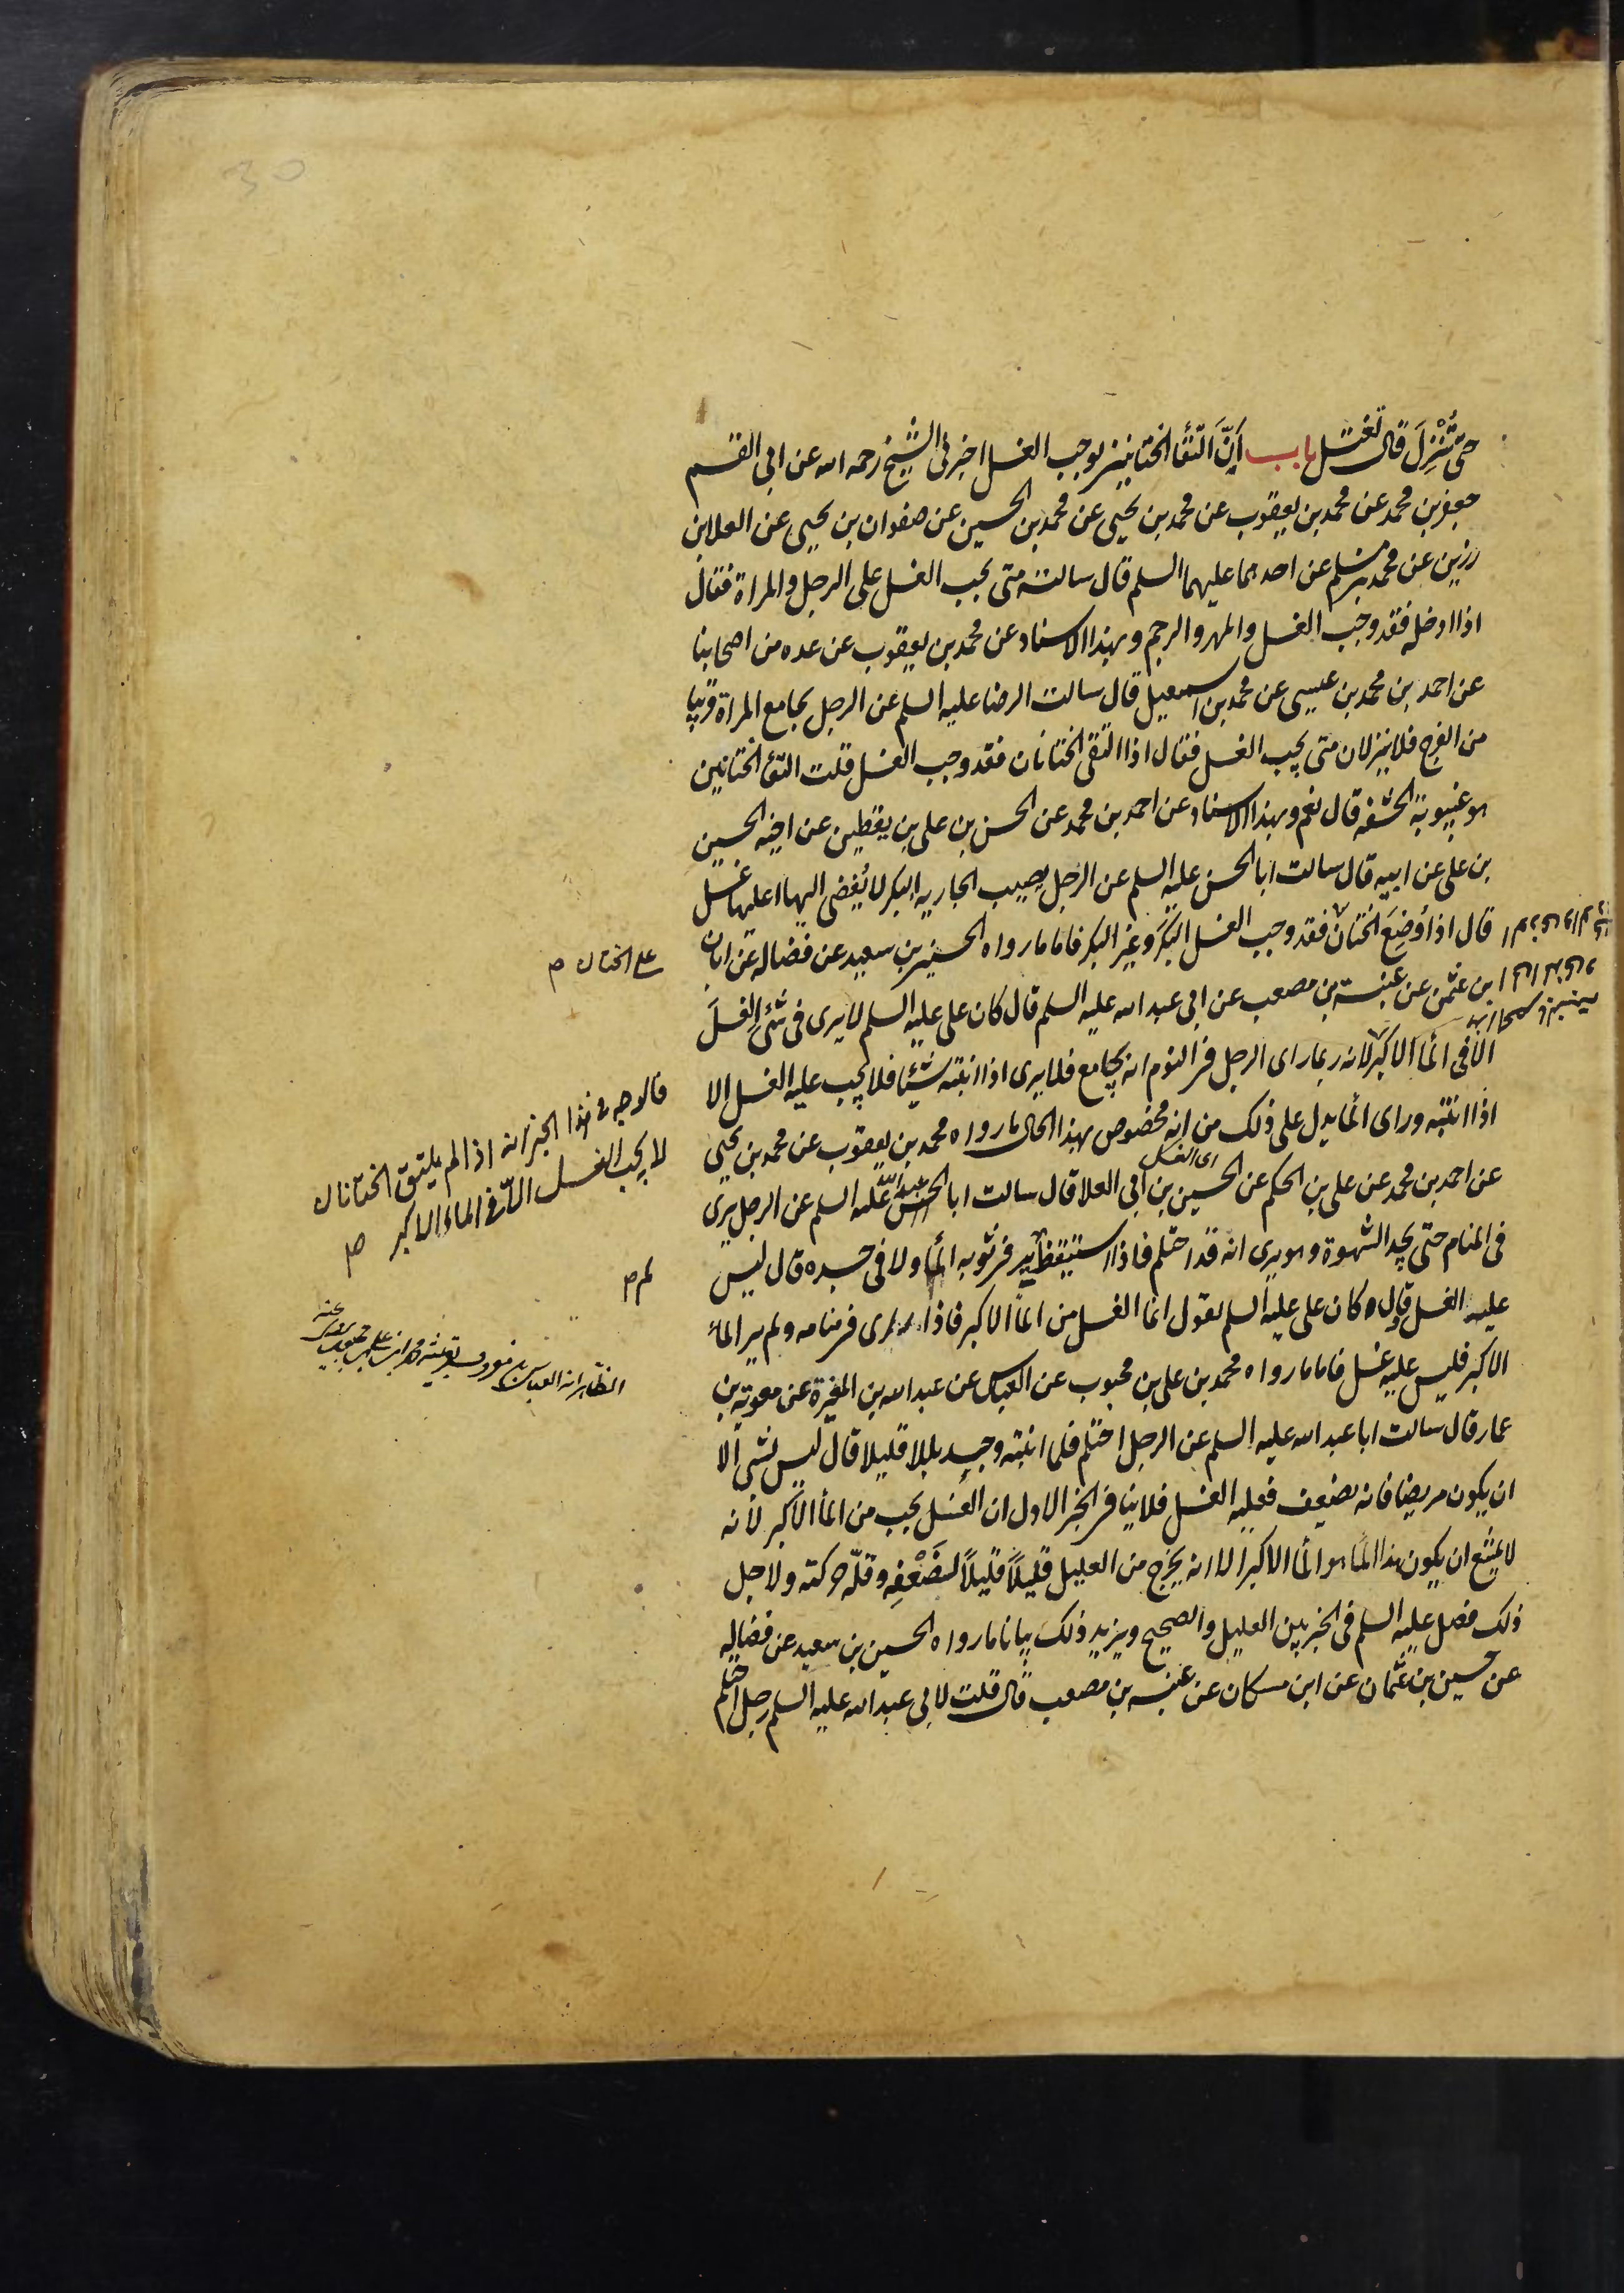 حتى تُنْزِلَ قال تغتسل باب اَنّ اَلتقاَ الختانين يوجب الغسل اخبرنى الشيخ رحمه الله عن ابى القسم
جعفر بن محمد عن محمد بن يعقوب عن محمد بن يحيى عن محمد بن الحسين عن صفوان بن يحيى عن العلا بن
رزين عن محمد بن مسلم عن احدهما عليهما السلم قال سالته متى يجب الغسل على الرجل والمراة فقال
اذا ادخله فقد وجب الغسل والمهر والرجم وبهذا الاسناد عن محمد بن يعقوب عن عده من اصحابنا
عن احمد بن محمد بن عيسى عن محمد بن اسمعيل قال سالت الرضا عليه السلم عن الرجل يجامع المراة قريبا
من الفرج فلا ينزلان متى يجب الغسل فقال اذا التقى الختانان فقد وجب الغسل قلت التقا الختانين
هو غيبوبة الحشفه قال نعم وبهذا الاسناد عن احمد بن محمد عن الحسن بن على بن يقطين عن اخيه الحسين
بن على عن ابيه قال سالت ابا الحسن عليه السلم عن الرجل يصيب الجاريه البكر لا يُفضى اليها اعليها غسل
قال اذا وُضِعَ الختان فقد وجب الغسل البكرَ وغير البكر فاما ما رواه الحسين بن سعيد عن فضاله عن ابان
على الختان ص
ابن عثمن عن عنبسة بن مصعب عن ابى عبد الله عليه السلم قال كان على عليه السلم لا يرى فى شئ الغسلَ
الا فى الما الاكبر لانه ربما راى الرجل فى النوم انه يجامع فلا يرى اذا انتبه شيئا فلا يجب عليه الغسل الا
فالوجه فى هذا الخبر انه اذا لم يلتق الختانان
لا يجب الغسل الّا فى الماء الاكبر ص
اذا انتبه وراى الما يدل على ذلك من انه مخصوص بهذا الحال ما رواه محمد بن يعقوب عن محمد بن يحيى
اى الغسل
عن احمد بن محمد عن على بن الحكم عن الحسين بن ابى العلا قال سالت ابا الحسن عليه السلم عن الرجل يرى
عبد الله
فى المنام حتى يجد الشهوة وهو يرى انه قد احتلم فاذا استيقظ ير فى ثوبه الما ولا فى جسده قال ليس
لم ص
عليه الغسل وقال كان على عليه السلم يقول انما الغسل من الما الاكبر فاذا راى فى منامه ولم ير الما
الاكبر فليس عليه غسل فاما ما رواه محمد بن على بن محبوب عن العباس عن عبد الله بن المغيرة عن معوية بن
الظاهر انه العباس بن معروف بقرينة محمد بن على بن محبوب عنه
عمار قال سالت ابا عبد الله عليه السلم عن الرجل احتلم فلما انتبه وجد بللا قليلا قال ليس بشى الا
ان يكون مريضا فانه يضعف فعليه الغسل فلا ينافى الخبر الاول ان الغسل يجب من الما الاكبر لانه
لا يمتنع ان يكون هذا الما هو الما الاكبر الا انه يخرج من العليل قليلاً قليلاً لضَعْفِهِ وقلّة حركته ولاجل
ذلك فصل عليه السلم فى الخبر بين العليل والصحيح ويزيد ذلك بيانا ما رواه الحسين بن سعيد عن فضاله
عن حسين بن عثمان عن ابن مسكان عن عنبسه بن مصعب قال قلت لابى عبد الله عليه السلم رجل احتلم